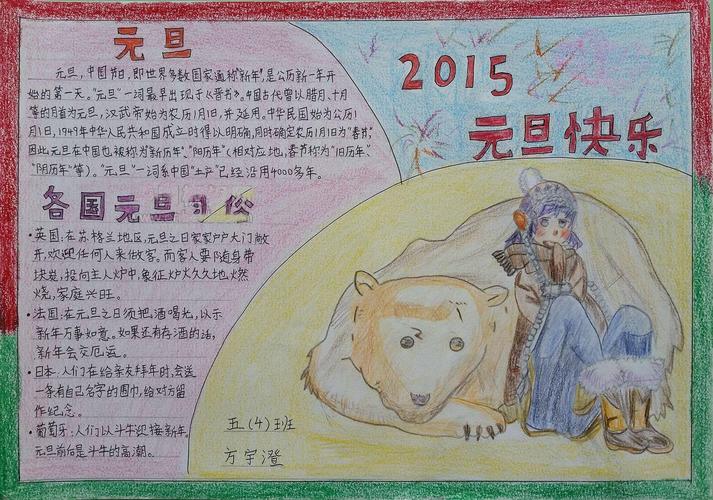 元旦
元旦，中国节日，即世界多数国家通称“新年”，是公历新一年开
始的第一天。“元旦”一词最早出现于《晋书》。中国古代曾以腊月、十月
等的月首为元旦，汉武帝始为农历1月1日，并延用。中华民国始为公历1
月1日，1949年中华人民共和国成立时得以明确，同时确定农历1月1日为“春节”，
因此元旦在中国也被称为“新历年”、“阳历年”（相对应地，春节称为“旧历年”、
“阴历年”等）。“元旦”一词系中国“土产”已经沿用4000多年。
2015
元旦快乐
各国元旦习俗
·英国：在苏格兰地区，元旦之日家家户户大门敞
开，欢迎任何人来做客。而客人要随身带
块炭，投向主人炉中，象征炉火久久地燃
烧，家庭兴旺。
·法国：在元旦之日须把酒喝光，以示
新年万事如意。如果还有存酒的话，
新年会交厄运。
·日本：人们在给亲友拜年时，会送
一条有自己名字的围巾，给对方留
作纪念。
·葡萄牙：人们以斗牛迎接新年，
元旦前后是斗牛的高潮。
五（4）班
方宇澄